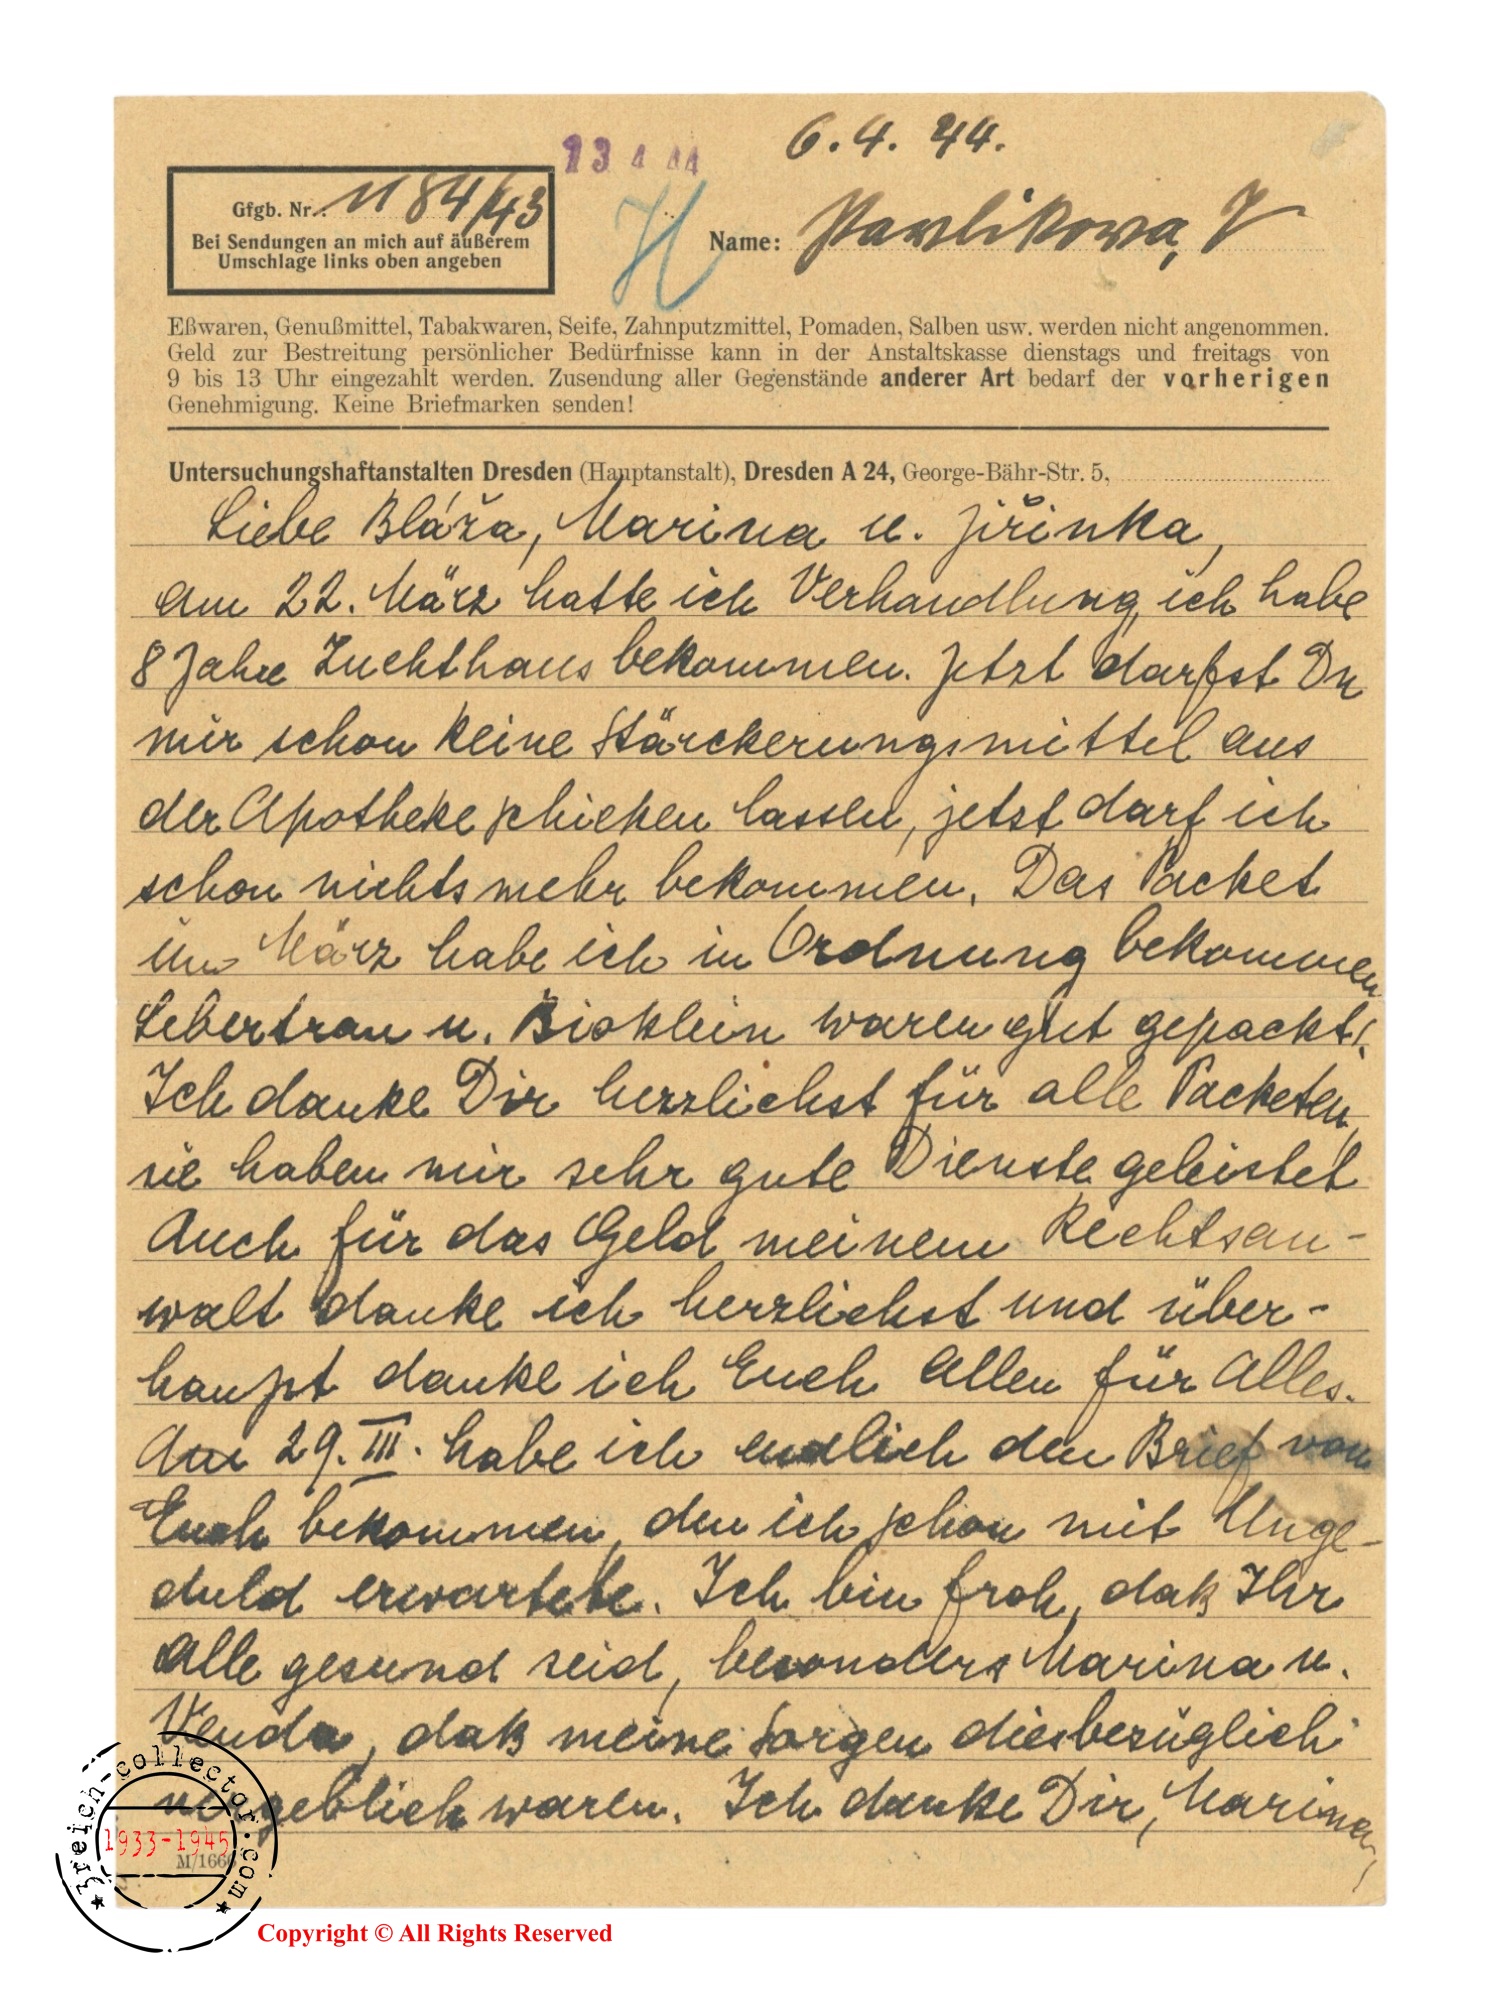 6.4.44.
13 4 44
Gfgb. Nr.: 1184/43
Bei Sendungen an mich auf äußerem
Umschlage links oben angeben
H
Name: Pawlikowa, J
Eßwaren, Genußmittel, Tabakwaren, Seife, Zahnputzmittel, Pomaden, Salben usw. werden nicht angenommen.
Geld zur Bestreitung persönlicher Bedürfnisse kann in der Anstaltskasse dienstags und freitags von
9 bis 13 Uhr eingezahlt werden. Zusendung aller Gegenstände anderer Art bedarf der vorherigen
Genehmigung. Keine Briefmarken senden!
Untersuchungshaftanstalten Dresden (Hauptanstalt), Dresden A 24, George-Bähr-Str. 5,
Liebe Bláža, Marina u. Jiřinka,
am 22. März hatte ich Verhandlung, ich habe
8 Jahre Zuchthaus bekommen. Jetzt darfst Du
mir schon keine Stärckerungsmittel aus
der Apotheke schicken lassen, jetzt darf ich
schon nichts mehr bekommen. Das Packet
im März habe ich in Ordnung bekommen
Lebertran u. Bioklein waren gut gepackt!
Ich danke Dir herzlichst für alle Packeten,
sie haben mir sehr gute Dienste geleistet
Auch für das Geld meinem Rechtsan-
walt danke ich herzlichst und über-
haupt danke ich Euch Allen für Alles.
Am 29. III. habe ich endlich den Brief von
Euch bekommen, den ich schon mit Unge-
duld erwartete. Ich bin froh, daß Ihr
Alle gesund seid, besonders Marina u.
Venda, daß meine Sorgen diesbezüglich
vergeblich waren. Ich danke Dir, Marina,
M/1666
3reich-collector.com
1933-1945
Copyright © All Rights Reserved